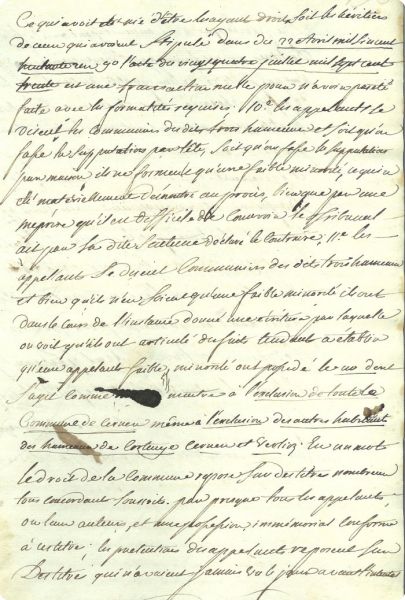 Ce qui avoit été nié d'être les ayant droit soit les héritiers
de ceux qui avoient stipulé dans du 22 avril mil six cent
huitante en 90 l'acte du vingt quatre juillet mil sept cent
trente est une transaction nulle pour n'avoir pas été
faite avec les formalités requises. 10.e les appelants se
disent les communiers des dits trois hameaux et soit qu'on
fasse les supputations par tête, soit qu'on fasse les supputations
par maison ils ne forment qu'une faible minorité, ce qui a
été matériellement démontré au procès, bien que par une
méprise qu'il est difficile de concevoir le tribunal
ait par sa dite sentence déclaré le contraire, 11.e les
appelants se disent communiers des dits trois hameaux
et bien qu'ils n'en soient qu'une faible minorité ils ont
dans le cours de l'instance donné une écriture par laquelle
on voit qu'ils ont articulé des faits tendant à établir
qu'eux appelants faible minorité ont possédé le  dont
s'agit comme  à l'exclusion de toute la
Commune de Cernex même à l'exclusion des autres habitants
des hameaux de  Cernex et Verlioz. En un mot
le droit de la commune repose sur des titres nombreux
tous concordants souscrits par presque tous les appelants
ou leurs auteurs, et une possession immémoriale conforme
à ces titres; les prétentions des appelants reposent sur
Des titres qui n'avoient jamais vu le jour avant l'instance